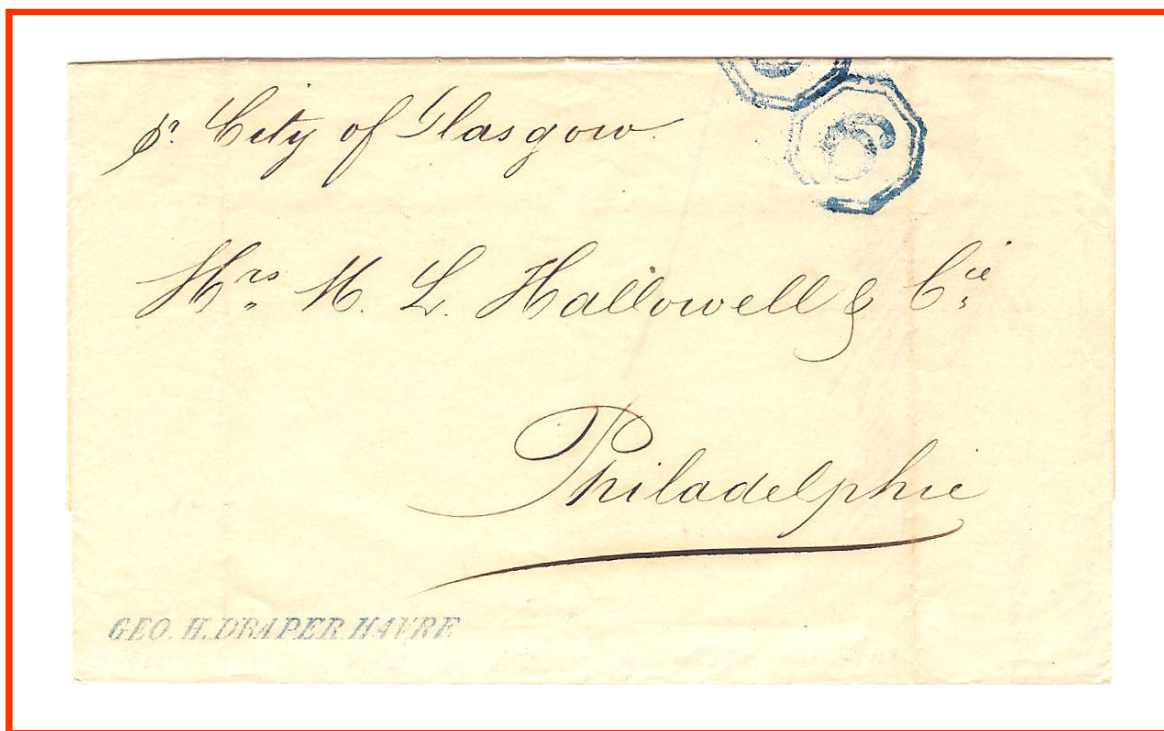 pr. City of Glasgow
6
Mrs. M. L. Hallowell & Cie.
Philadelphie
GEO. H. DRAPER HAVRE